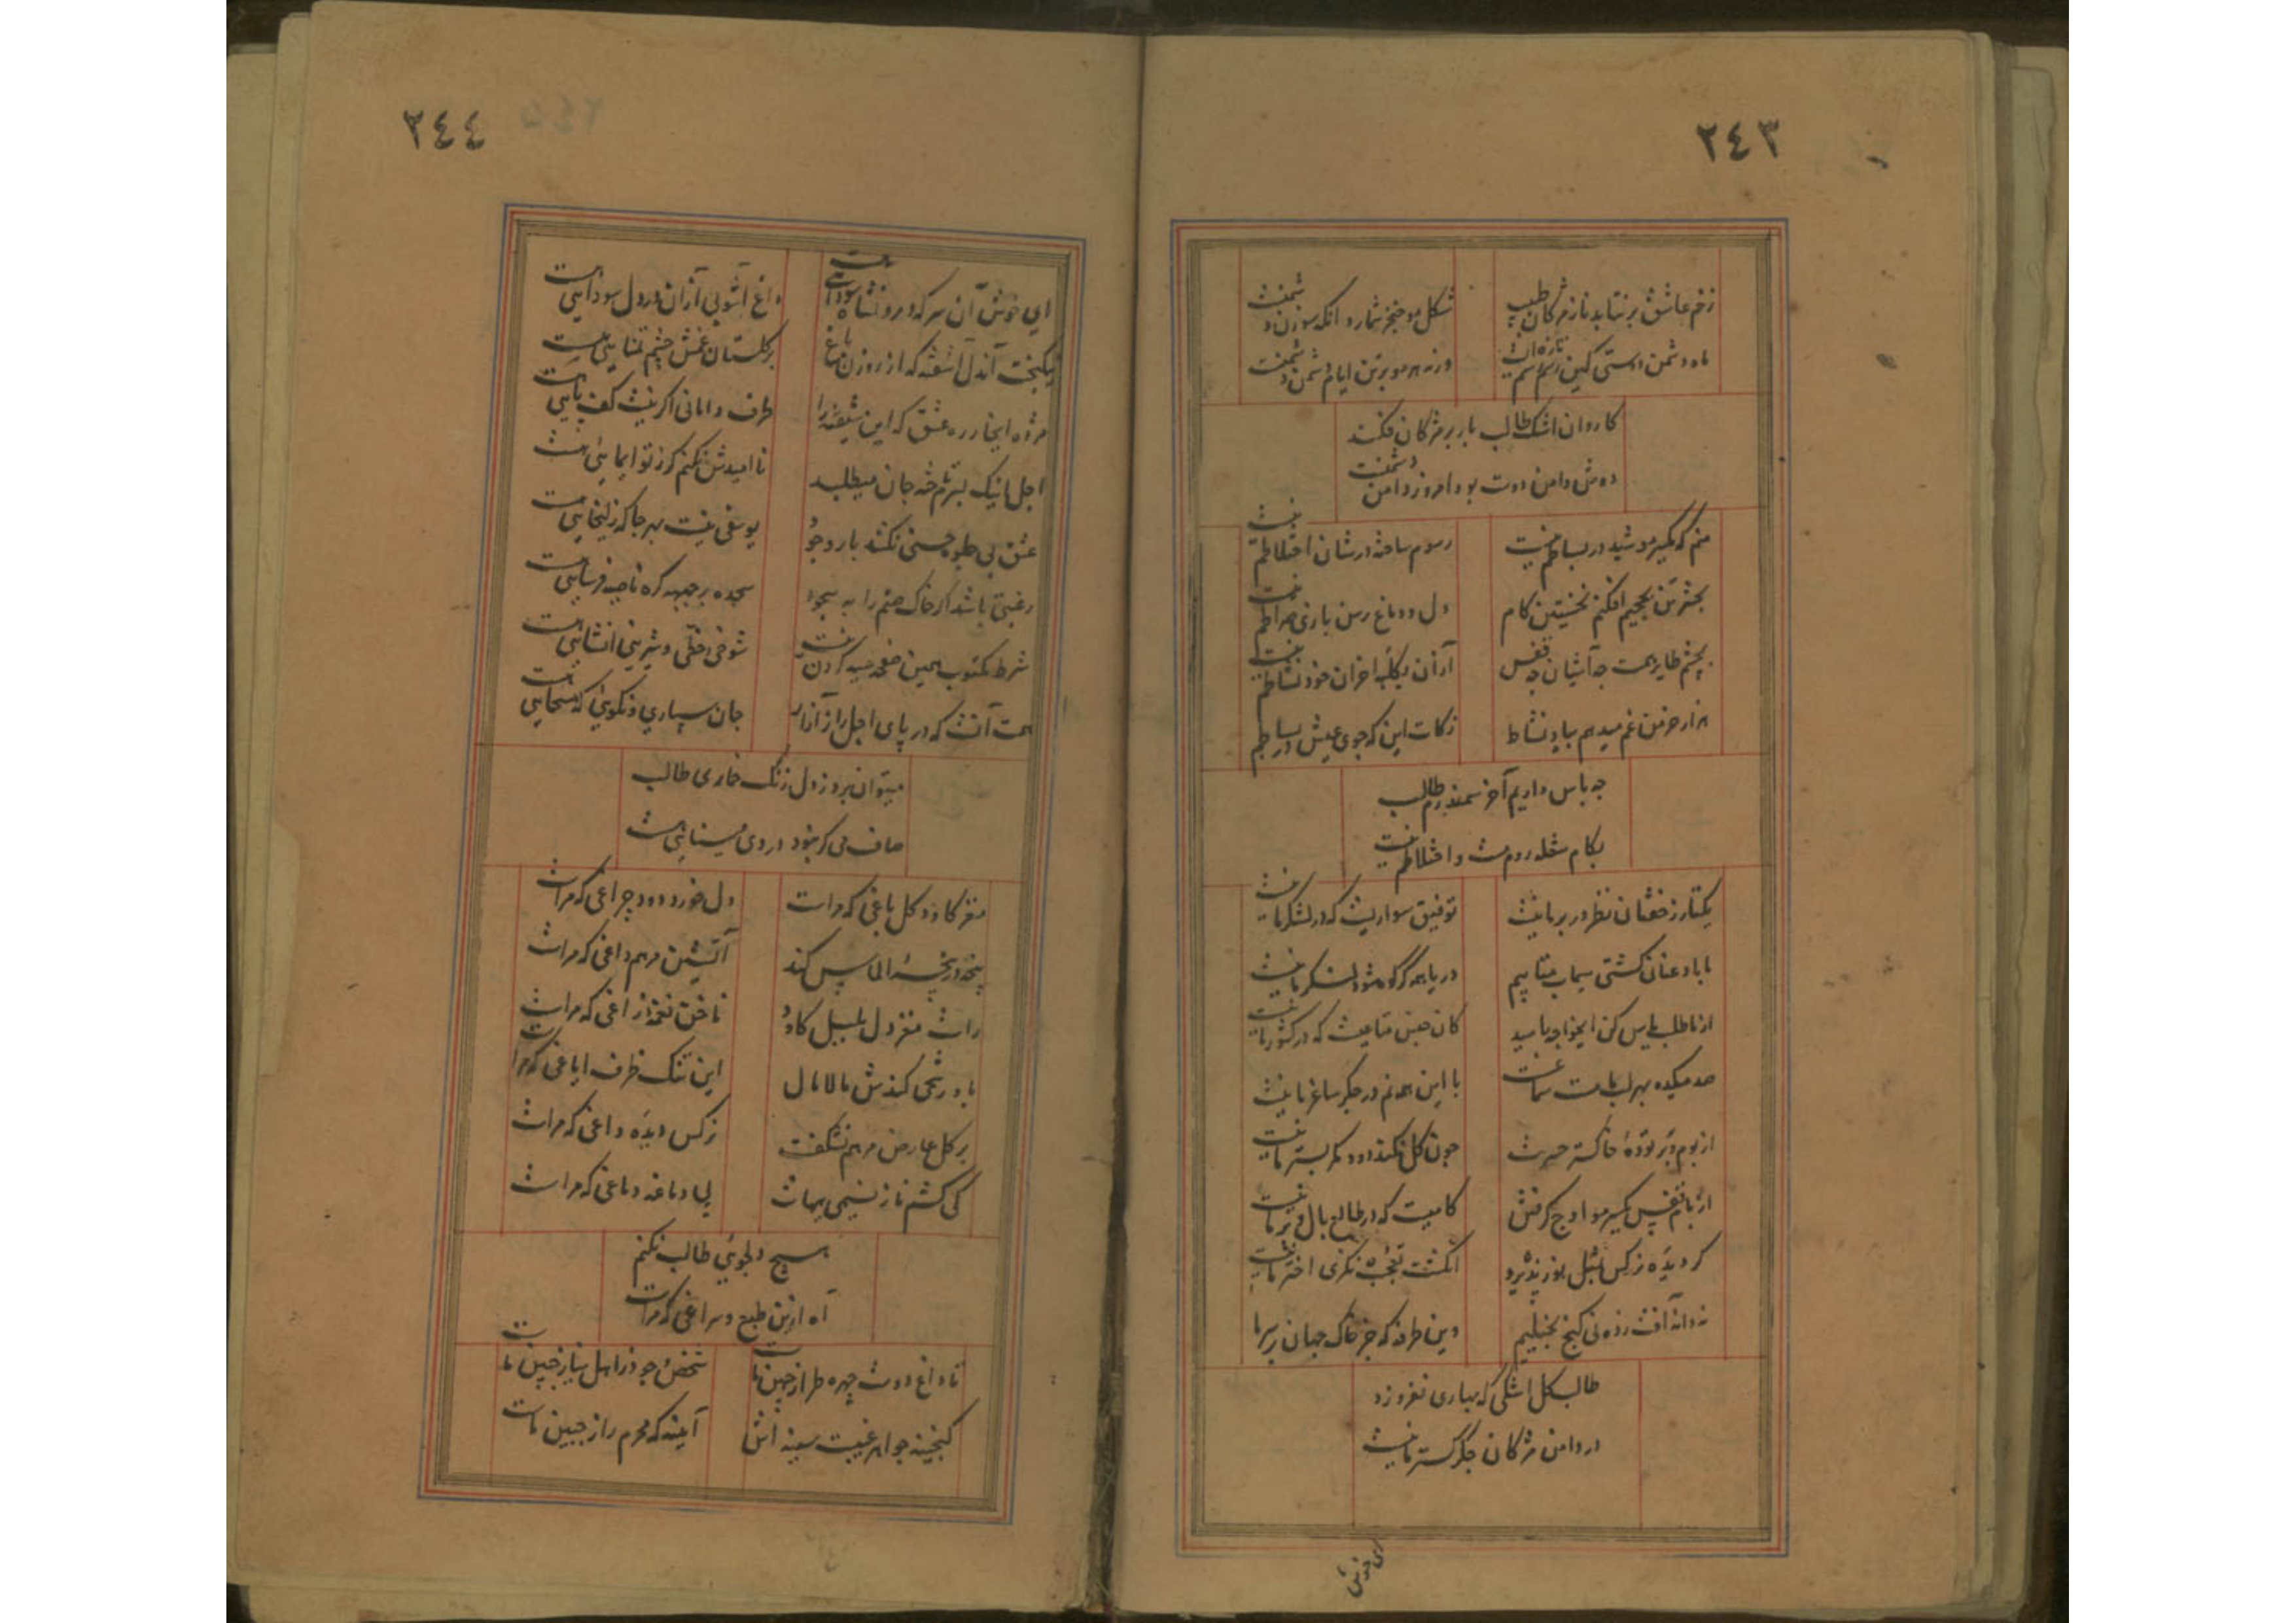 ٢٤٣
زخم عاشق برنتابد ناز مژکان طبیب
شکل مو خنجر شمارد آنکه سوزن دشمنست
ماه دشمن دوستی کین رسم
ورنه هر مو بر تن ایام دشمن دشمنست
کاروان اشک طالب بار بر مژکان فکند
دوش دامن دوست بود امروز دامن دشمنست
منم که یکسر مو شید در بساطم نیست
رسوم ساخته در شان اختلاطم نیست
بحشر تن بجحیم افکنم نخستین کام
دل و دماغ رسن بازی صراطم نیست
بچشم طایر همت چه آشیان چه قفس
از آن بکلبه احزان خود نشاطم نیست
هزار خرمن غم میدهم بباد نشاط
زکات این که جوی عیش در بساطم نیست
چه باس داریم آخر سمندرم طالب
بکام شعله روم مشت و اختلاطم نیست
یکتار ز خفتان ظفر در بر ما نیست
توفیق سواریست که در لشکر ما نیست
با باد عنان کشتی سیماب متابیم
دریا همه کر کوه شود لنکر ما نیست
از ما طلب یاس کن ایخواجه نه امید
کان جنس متاعیست که در کشور ما نیست
صد میکده بهر لب ما مست سماعست
با این همه نم در جکر ساغر ما نیست
از بوم و بر توده خاکستر حسرت
چون کل نکند دود مکر بستر ما نیست
از بام قفس یکسر مو اوج کرفتن
کامیست که در طالع بال و پر ما نیست
کر دیده نرکس بمثل نور پذیرد
انکشت تعجب نکزی اختر ما نیست
نه دانه آفت زده نی کنج بخیلیم
وین طرفه که جز خاک جهان بر سر ما
طالب کل اشکی که بهاری نفروزد
در دامن مژکان جکر کستر ما نیست
ای خوش
٢٤٤
ای خوش آن سر که درو نشاه سودائی هست
داغ آشوبی از آن در دل سودائی هست
نیکبخت آندل آشفته که از روزن داغ
بر کلستان غمش چشم تمنایی هست
مژده ای خار ره عشق که این شیفته را
طرف دامانی اکر نیست کف پایی هست
اجل اینک بسرم تاخته جان میطلبد
نا امیدش نکنم کر ز تو ایمایی هست
عشق بی جلوه حسنی نکشد بار وجود
یوسفی نیست بهر جا که زلیخایی هست
رغبتی باشد اکر خاک صنم را به سجود
سجده بر جبهه کره ناصیه فرسایی هست
شرط مکتوب همین صفحه سیه کردن نیست
شوخی خطی و شیرینی انشایی هست
همت آنست که در پای اجل زار از آر
جان سپاری و نکویی که مسیحایی هست
میتوان برد ز دل زنک خماری طالب
صاف می کر نبود دردی مینایی هست
مغز کاود کل باغی که مراست
دل خورد دود چراغی که مراست
پنجه در پنجه الماس کند
آتشین مرهم داغی که مراست
راست مغز دل بلبل کاود
ناخن نغمه زاغی که مراست
باد رشحی کندش مالامال
این تنک ظرف ایاغی که مراست
بر کل عارض مرهم نشکفت
نرکس دیده داغی که مراست
کی کشم ناز نسیمی بهاث
بی دماغه دماغی که مراست
هیچ دلجویی طالب نکنم
آه ازین طبع و سراغی که مراست
تا داغ دوست چهره طراز جبین ماست
شخص وجود زاهل نیاز جبین ماست
کنجینه جواهر غیبست سینه اش
آیینه که محرم راز جبین ماست